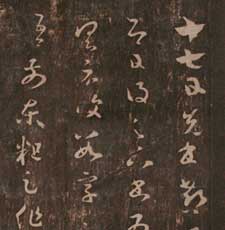 十七日先書郗
即日得足下書為
具示復數字
吾前東粗足作